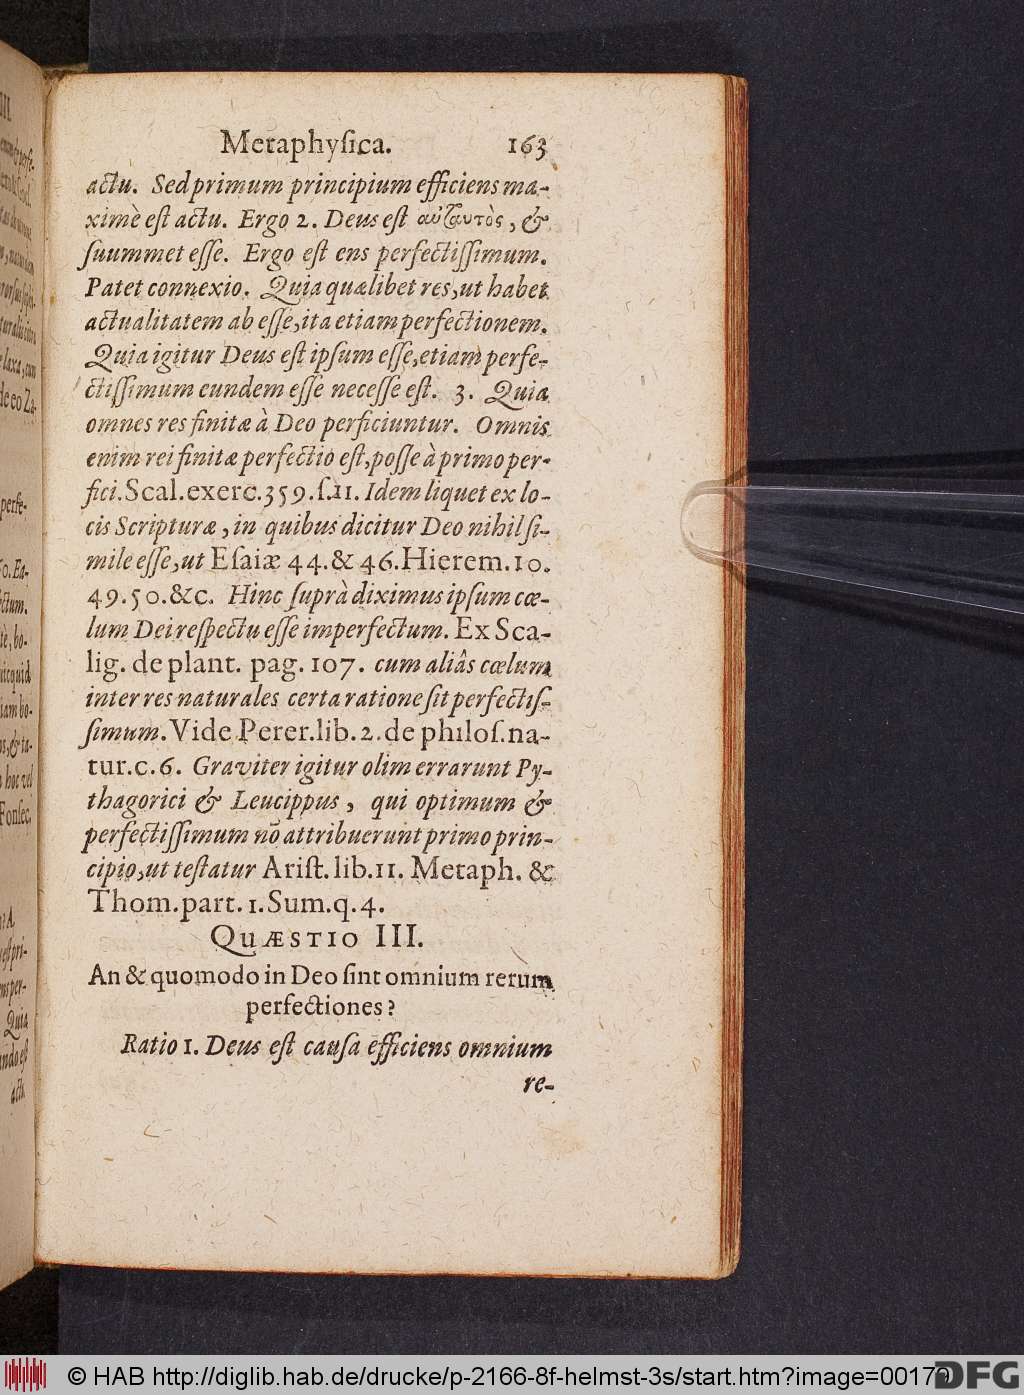 Metaphyſica. 163
actu. Sed primum principium efficiens ma-
ximè eſt actu. Ergo 2. Deus eſt αὐταυτὸς, &
ſuummet eſſe. Ergo eſt ens perfectiſſimum.
Patet connexio. Quia quælibet res, ut habet
actualitatem ab eſſe, ita etiam perfectionem.
Quia igitur Deus eſt ipſum eſſe, etiam perfe-
ctiſſimum eundem eſſe neceſſe eſt. 3. Quia
omnes res finitæ à Deo perficiuntur. Omnis
enim rei finitæ perfectio eſt, poſſe à primo per-
fici. Scal. exerc. 359. ſ. 11. Idem liquet ex lo-
cis Scripturæ, in quibus dicitur Deo nihil ſi-
mile eſſe, ut Eſaiæ 44. & 46. Hierem. 10.
49. 50. &c. Hinc ſuprà diximus ipſum cœ-
lum Dei reſpectu eſſe imperfectum. Ex Sca-
lig. de plant. pag. 107. cum aliâs cœlum
inter res naturales certa ratione ſit perfectiſ-
ſimum. Vide Perer. lib. 2. de philoſ. na-
tur. c. 6. Graviter igitur olim errarunt Py-
thagorici & Leucippus, qui optimum &
perfectiſſimum nō attribuerunt primo prin-
cipio, ut teſtatur Ariſt. lib. 11. Metaph. &
Thom. part. 1. Sum. q. 4.
QUÆSTIO III.
An & quomodo in Deo ſint omnium rerum
perfectiones?
Ratio 1. Deus eſt cauſa efficiens omnium
re-
© HAB http://diglib.hab.de/drucke/p-2166-8f-helmst-3s/start.htm?image=00179
DFG